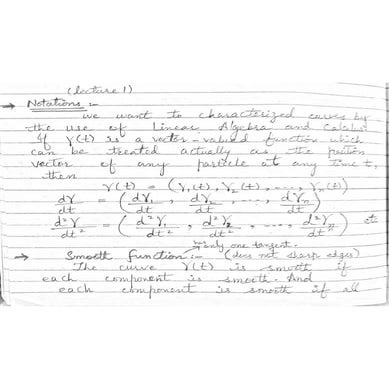 (lecture 1)
→ Notations :-
we want to characterized curves by
the use of Linear Algebra and Calculus
If γ(t) is a vector-valued function which
can be treated actually as the position
vector of any particle at any time t,
then
γ(t) = (γ₁(t), γ₂(t), ..., γₙ(t))
dγ/dt = (dγ₁/dt, dγ₂/dt, ..., dγₙ/dt)
d²γ/dt² = (d²γ₁/dt², d²γ₂/dt², ..., d²γₙ/dt²)
only one tangent.
→ Smooth function :- (does not sharp edges)
The curve γ(t) is smooth if
each component is smooth. And
each component is smooth if all